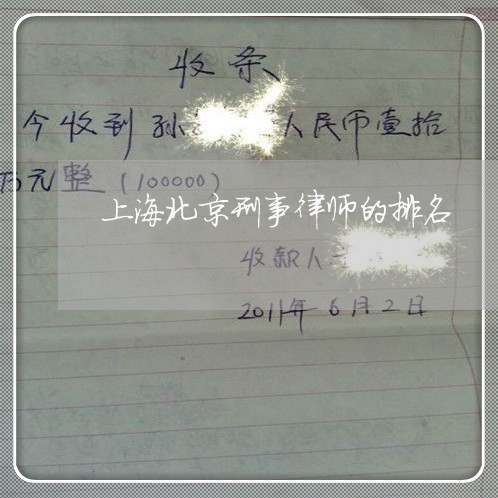 收条
今收到孙 人民币壹拾
万元整（100000）
上海北京刑事律师的排名
收款人
2011年6月2日